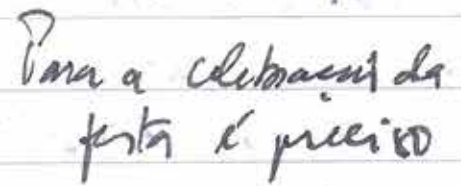 Para a celebração da
festa é preciso